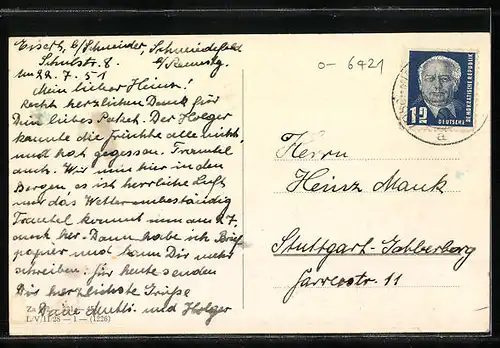 b/Schneider, Schmiedefeld
Schulstr. 8.
22.7.51
Mein lieber Heinz!
Recht herzlichen Dank für
Dein liebes Paket. Der Holger
kannte die Früchte alle nicht,
und hat gegessen. Trautel
auch. Wir sind hier in den
Bergen, es ist herrliche Luft
nur das Wetter unbeständig
Trautel kommt nun am 27.
auch her. Dann habe ich Brief
papier und kann Dir mehr
schreiben. für heute senden
Dir herzlichste Grüße
Deine und Holger
L/V/11/28 — 1 — (1226)
0- 6421
12
DEUTSCHE
DEMOKRATISCHE REPUBLIK
a
Herrn
Heinz Mauk
Stuttgart-Gabberberg
11